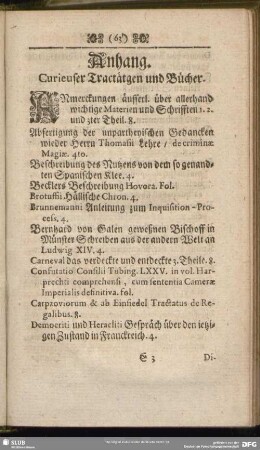 (65)
Anhang.
Curieuser Tractätgen und Bücher.
ANmerckungen äusserl. über allerhand
wichtige Materien und Schrifften 1. 2.
und 3ter Theil. 8.
Abfertigung der unpartheyischen Gedancken
wieder Herrn Thomasii Lehre / de crimine
Magiæ. 4to.
Beschreibung des Nutzens von dem so genand-
ten Spanischen Klee. 4.
Becklers Beschreibung Hovora. Fol.
Brotuffii Hällische Chron. 4.
Brunnemanni Anleitung zum Inquisition-Pro-
cess. 4.
Bernhard von Galen gewesnen Bischoff in
Münster Schreiben aus der andern Welt an
Ludwig XIV. 4.
Carneval das verdeckte und entdeckte 3. Theile. 8.
Confutatio Consilii Tubing. LXXV. in vol. Har-
prechti comprehensi, cum sententia Cameræ
Imperialis definitiva. fol.
Carpzoviorum & ab Einsiedel Tractatus de Re-
galibus. 8.
Democriti und Heracliti Gespräch über den jetzi-
gen Zustand in Franckreich. 4.
E 3
Di-
SLUB